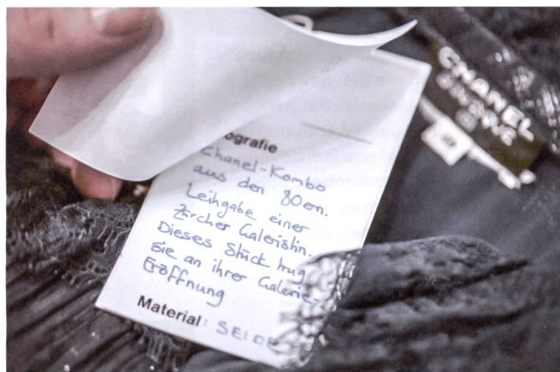 ografie
Chanel-Kombo
aus den 80em.
Leihgabe einer
Zürcher Galeristin.
Dieses Stück trug
sie an ihrer Galerie-
Eröffnung
Material: SEIDE
CHANEL